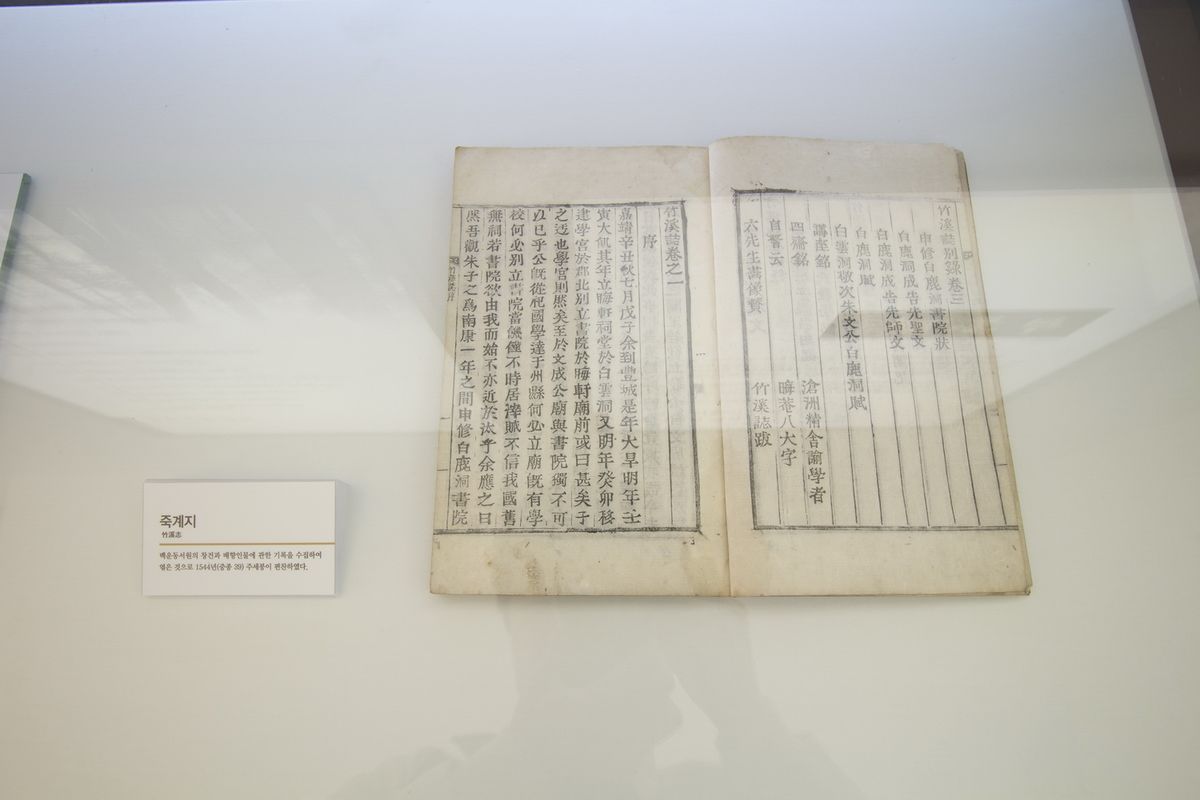 죽계지
竹溪志
백운동서원의 창건과 배향인물에 관한 기록을 수집하여
엮은 것으로 1544년(중종 39) 주세붕이 편찬하였다.
竹溪誌別錄卷三
申修白鹿洞書院狀
白鹿洞成告先聖文
白鹿洞成告先師文
白鹿洞賦
白雲洞敬次朱文公白鹿洞賦
講座銘 滄洲精舍諭學者
四齋銘 晦菴八大字
自警云 竹溪誌跋
六先生畵像贊
竹溪誌卷之一
序
嘉靖辛丑秋七月戊子余到豐城是年大旱明年壬
寅大飢其年立晦軒祠堂於白雲洞又明年癸卯移
建學宮於郡北別立書院於晦軒廟前或曰甚矣子
之迂也學宮則然矣至於文成公廟與書院獨不可
以已乎公旣從祀國學達于州縣何必立廟旣有學
校何必別立書院當饑饉不時居滓賦不信我國舊
無祠若書院欲由我而始不亦近於汰乎余應之曰
然吾觀朱子之爲南康一年之間申修白鹿洞書院